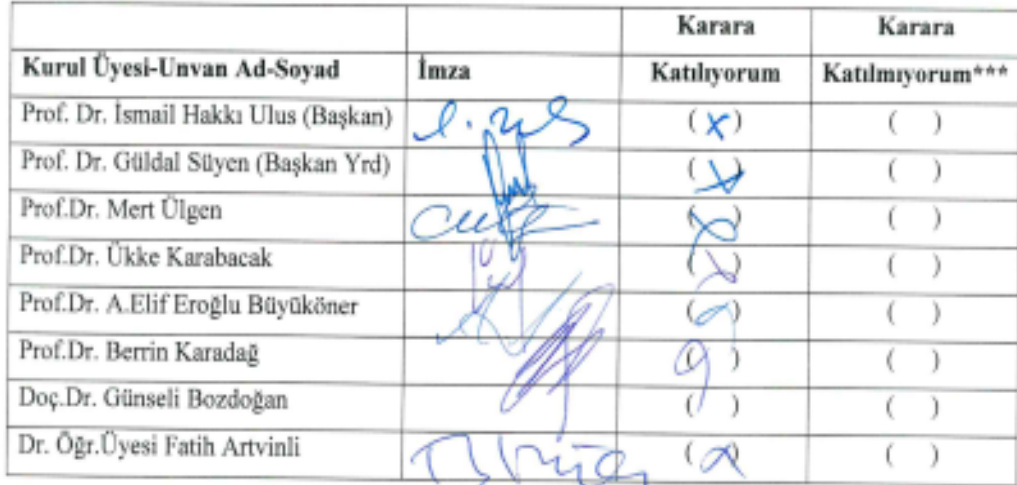 Karara Karara
Kurul Üyesi-Unvan Ad-Soyad İmza Katılıyorum Katılmıyorum***
Prof. Dr. İsmail Hakkı Ulus (Başkan) (x) ( )
Prof. Dr. Güldal Süyen (Başkan Yrd) (x) ( )
Prof.Dr. Mert Ülgen (x) ( )
Prof.Dr. Ükke Karabacak (x) ( )
Prof.Dr. A.Elif Eroğlu Büyüköner ( ) ( )
Prof.Dr. Berrin Karadağ ( ) ( )
Doç.Dr. Günseli Bozdoğan ( ) ( )
Dr. Öğr.Üyesi Fatih Artvinli (x) ( )